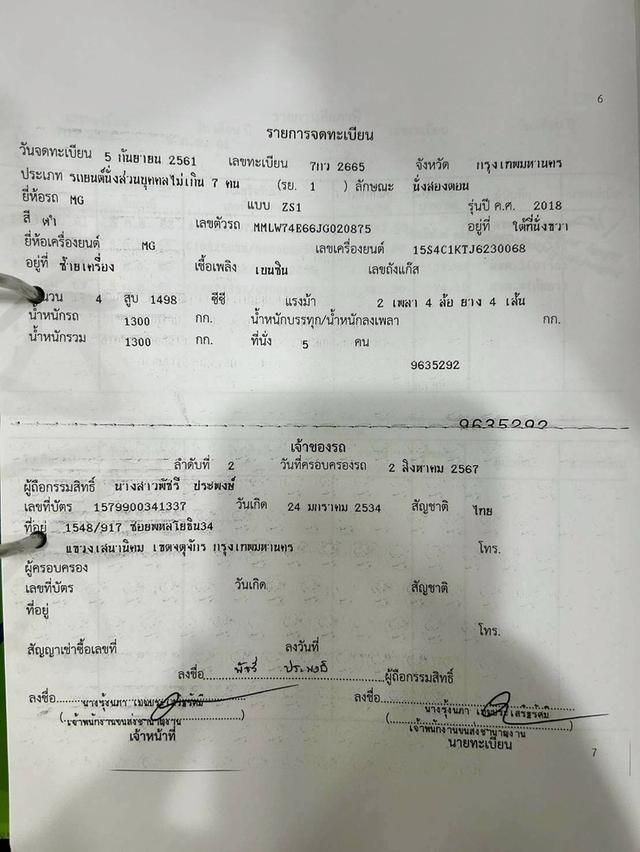 6
รายการจดทะเบียน
วันจดทะเบียน 5 กันยายน 2561 เลขทะเบียน 7กว 2665 จังหวัด กรุงเทพมหานคร
ประเภท รถยนต์นั่งส่วนบุคคลไม่เกิน 7 คน (รย. 1 ) ลักษณะ นั่งสองตอน
ยี่ห้อรถ MG แบบ ZS1 รุ่นปี ค.ศ. 2018
สี ดำ เลขตัวรถ MMLW74E66JG020875 อยู่ที่ ใต้ที่นั่งขวา
ยี่ห้อเครื่องยนต์ MG เลขเครื่องยนต์ 15S4C1KTJ6230068
อยู่ที่ ซ้ายเครื่อง เชื้อเพลิง เบนซิน เลขถังแก๊ส
4 สูบ 1498 ซีซี แรงม้า 2 เพลา 4 ล้อ ยาง 4 เส้น
น้ำหนักรถ 1300 กก. น้ำหนักบรรทุก/น้ำหนักลงเพลา กก.
น้ำหนักรวม 1300 กก. ที่นั่ง 5 คน
9635292
9635292
เจ้าของรถ
ลำดับที่ 2 วันที่ครอบครองรถ 2 สิงหาคม 2567
ผู้ถือกรรมสิทธิ์ นางสาวพัชรี ประพงษ์
เลขที่บัตร 1579900341337 วันเกิด 24 มกราคม 2534 สัญชาติ ไทย
ที่อยู่ 1548/917 ซอยพหลโยธิน34
แขวงเสนานิคม เขตจตุจักร กรุงเทพมหานคร โทร.
ผู้ครอบครอง
เลขที่บัตร วันเกิด สัญชาติ
ที่อยู่
โทร.
สัญญาเช่าซื้อเลขที่ ลงวันที่
ลงชื่อ พัชรี ประพงษ์ ผู้ถือกรรมสิทธิ์
ลงชื่อ ลงชื่อ
นางรุ่งนภา นางรุ่งนภา
(เจ้าพนักงานขนส่งชำนาญงาน) (เจ้าพนักงานขนส่งชำนาญงาน)
เจ้าหน้าที่ นายทะเบียน
7